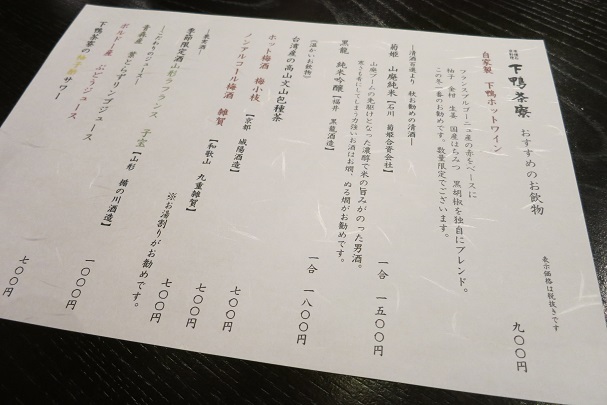 下鴨茶寮 おすすめのお飲物
表示価格は税抜きです
自家製 下鴨ホットワイン 九〇〇円
フランスブルゴーニュ産の赤をベースに
柚子 金柑 生姜 国産はちみつ 黒胡椒を独自にブレンド。
この冬一番のお勧めです。数量限定でございます。
―清酒百選より 秋お勧めの清酒―
菊姫 山廃純米【石川 菊姫合資会社】 一合 一五〇〇円
山廃ブームの先駆けとなった濃醇で米の旨みがのった男酒。
黒龍 純米吟醸【福井 黒龍酒造】 一合 一八〇〇円
（温かいお飲物）
台湾産の高山文山包種茶 七〇〇円
ホット梅酒 梅小枝 【京都 城陽酒造】 七〇〇円
ノンアルコール梅酒 雑賀 【和歌山 九重雑賀】 七〇〇円
―果実酒―
季節限定酒 山形ラフランス 子宝 【山形 楯の川酒造】
※お湯割りがお勧めです。
―こだわりのジュース―
青森産 葉とらずリンゴジュース 一〇〇〇円
ボルドー産 ぶどうジュース
下鴨茶寮の柚子酢サワー 七〇〇円